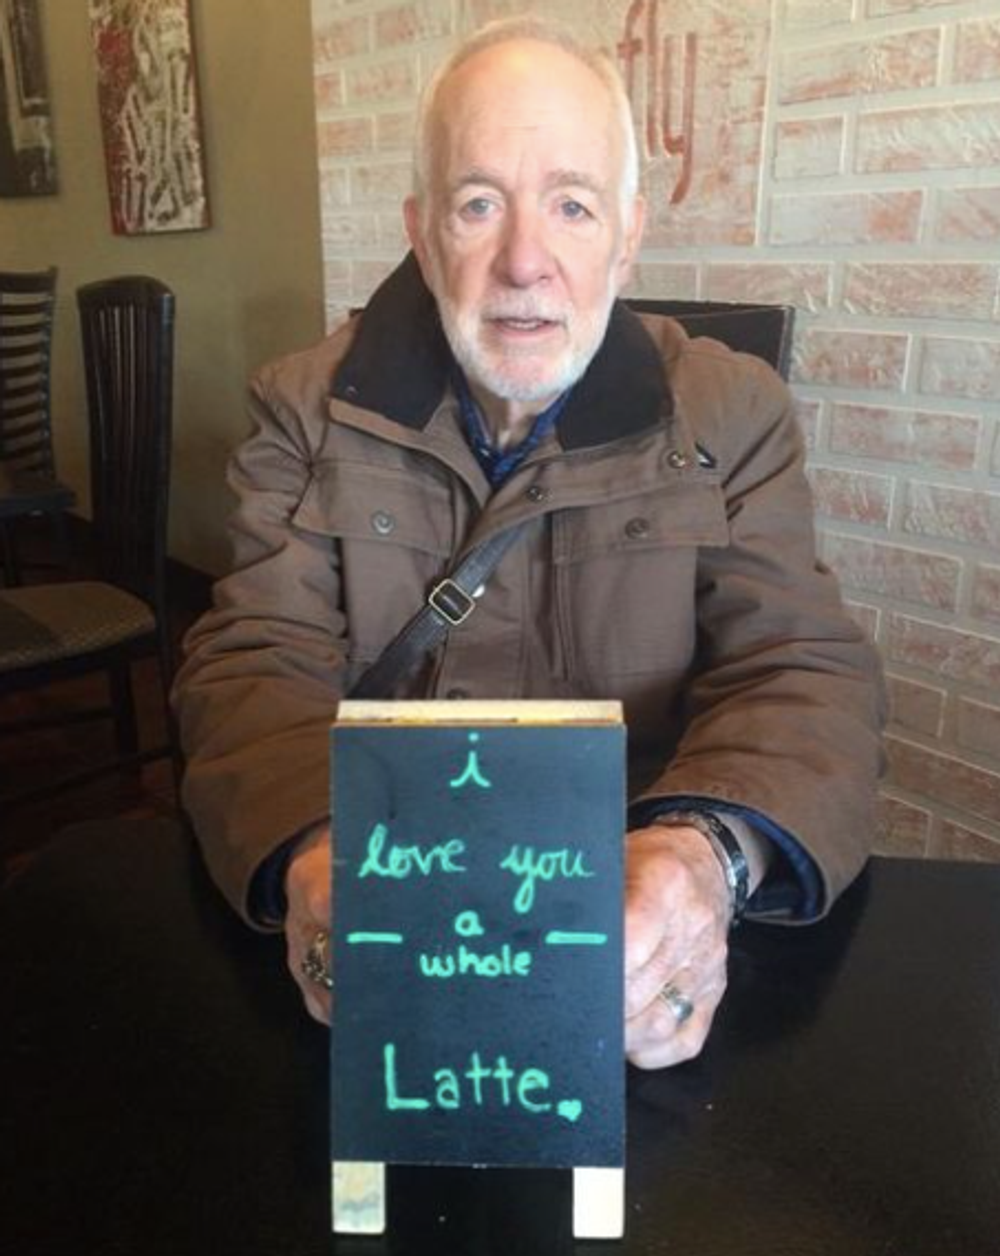 fly
i
love you
a
whole
Latte.